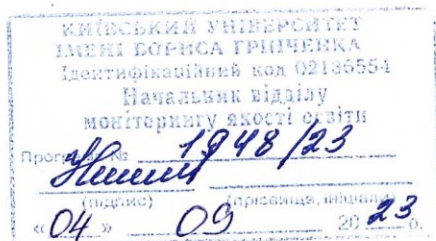 КИЇВСЬКИЙ УНІВЕРСИТЕТ
ІМЕНІ БОРИСА ГРІНЧЕНКА
Ідентифікаційний код 02136554
Начальник відділу
моніторингу якості освіти
Програма № 1948/23
(підпис) (прізвище, ініціали)
«04» 09 2023 р.